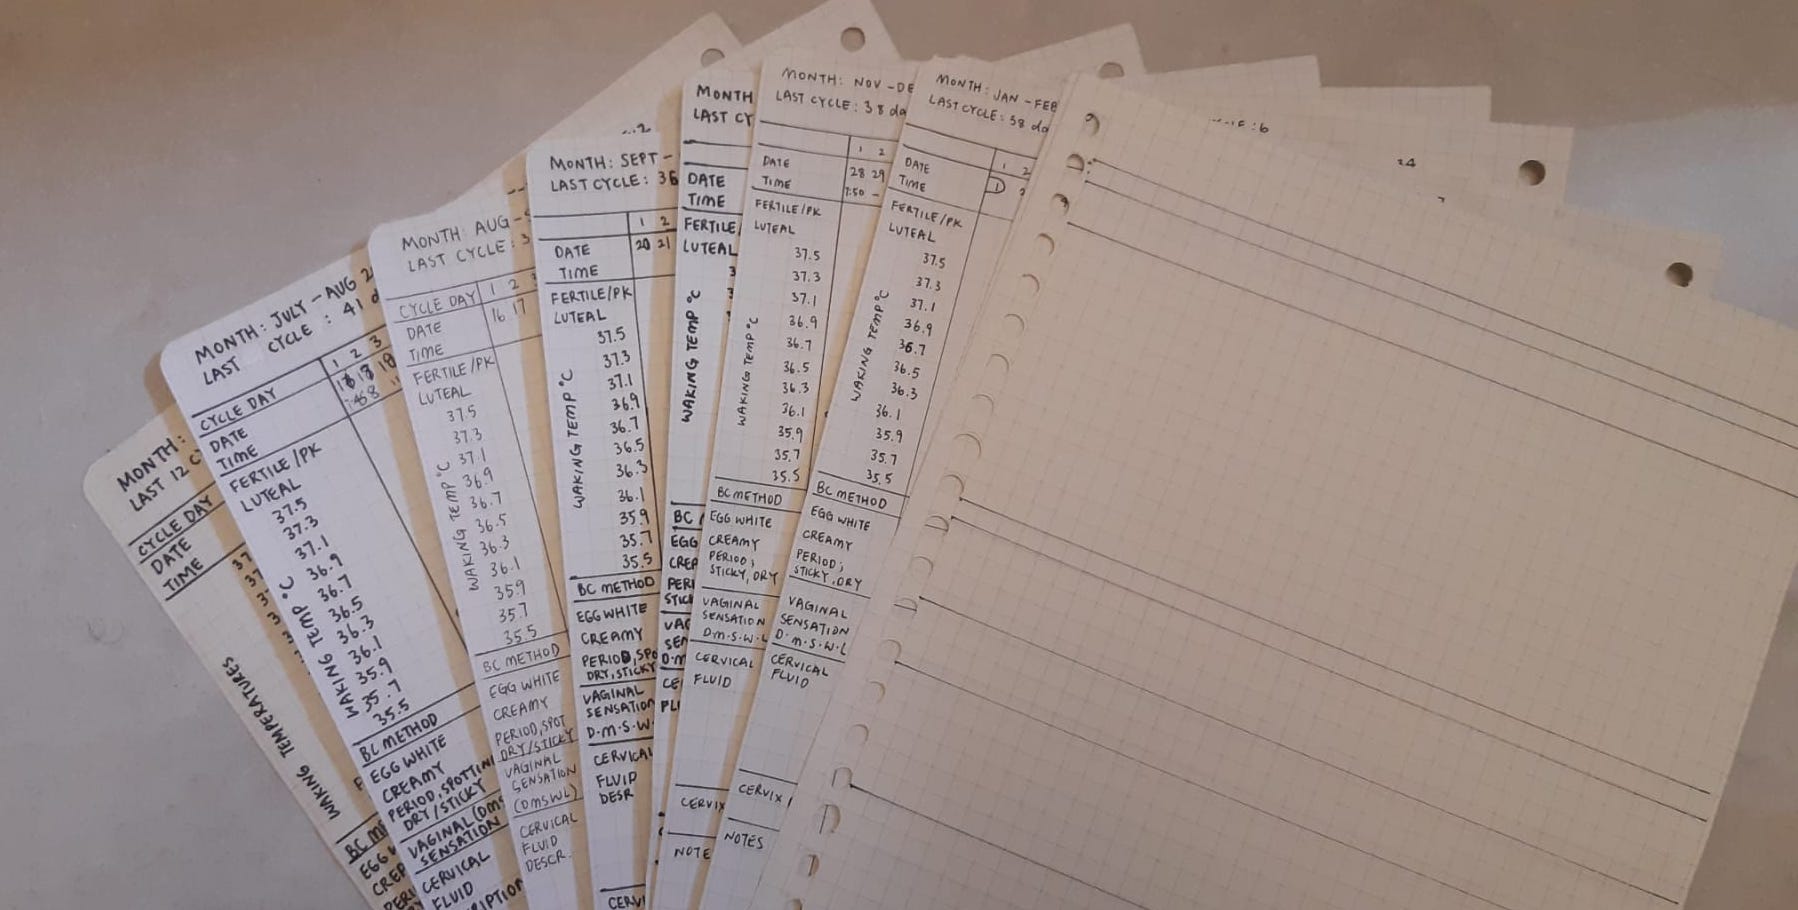 MONTH:
LAST 12 C
CYCLE DAY
DATE
TIME
WAKING TEMPERATURES
MONTH: JULY - AUG
LAST CYCLE : 41 d
CYCLE DAY 1 2 3
DATE
TIME
FERTILE/PK
LUTEAL
WAKING TEMP °C
37.5
37.3
37.1
36.9
36.7
36.5
36.3
36.1
35.9
35.7
35.5
BC METHOD
EGG WHITE
CREAMY
PERIOD, SPOTTIN
DRY/STICKY
VAGINAL (DMS
SENSATION
CERVICAL
FLUID
MONTH: AUG -
LAST CYCLE: 3
CYCLE DAY 1 2
DATE 16 17
TIME
FERTILE/PK
LUTEAL
WAKING TEMP °C
37.5
37.3
37.1
36.9
36.7
36.5
36.3
36.1
35.9
35.7
35.5
BC METHOD
EGG WHITE
CREAMY
PERIOD, SPOT
DRY/STICKY
VAGINAL
SENSATION
(DMSWL)
CERVICAL
FLUID
DESCR.
MONTH: SEPT -
LAST CYCLE: 36
1 2
DATE 20 21
TIME
FERTILE/PK
LUTEAL
WAKING TEMP °C
37.5
37.3
37.1
36.9
36.7
36.5
36.3
36.1
35.9
35.7
35.5
BC METHOD
EGG WHITE
CREAMY
PERIOD, SPO
DRY, STICKY
VAGINAL
SENSATION
D.M.S.W.
CERVICAL
FLUID
DESR
CERVI
MONTH
LAST CY
DATE
TIME
FERTILE/
LUTEAL
WAKING TEMP °C
BC
EGG
CREA
PERI
STICK
VAG
SEN
D.M
MONTH: NOV - DE
LAST CYCLE: 38 da
1 2
DATE 28 29
TIME 7:50 -
FERTILE/PK
LUTEAL
WAKING TEMP °C
37.5
37.3
37.1
36.9
36.7
36.5
36.3
36.1
35.9
35.7
35.5
BC METHOD
EGG WHITE
CREAMY
PERIOD;
STICKY, DRY
VAGINAL
SENSATION
D.M.S.W.L
CERVICAL
FLUID
CERVIX
NOTE
MONTH: JAN - FEB
LAST CYCLE: 38 da
1 2
DATE 1
TIME
FERTILE/PK
LUTEAL
WAKING TEMP °C
37.5
37.3
37.1
36.9
36.7
36.5
36.3
36.1
35.9
35.7
35.5
BC METHOD
EGG WHITE
CREAMY
PERIOD;
STICKY, DRY
VAGINAL
SENSATION
D.M.S.W.L
CERVICAL
FLUID
CERVIX
NOTES
: 6
24